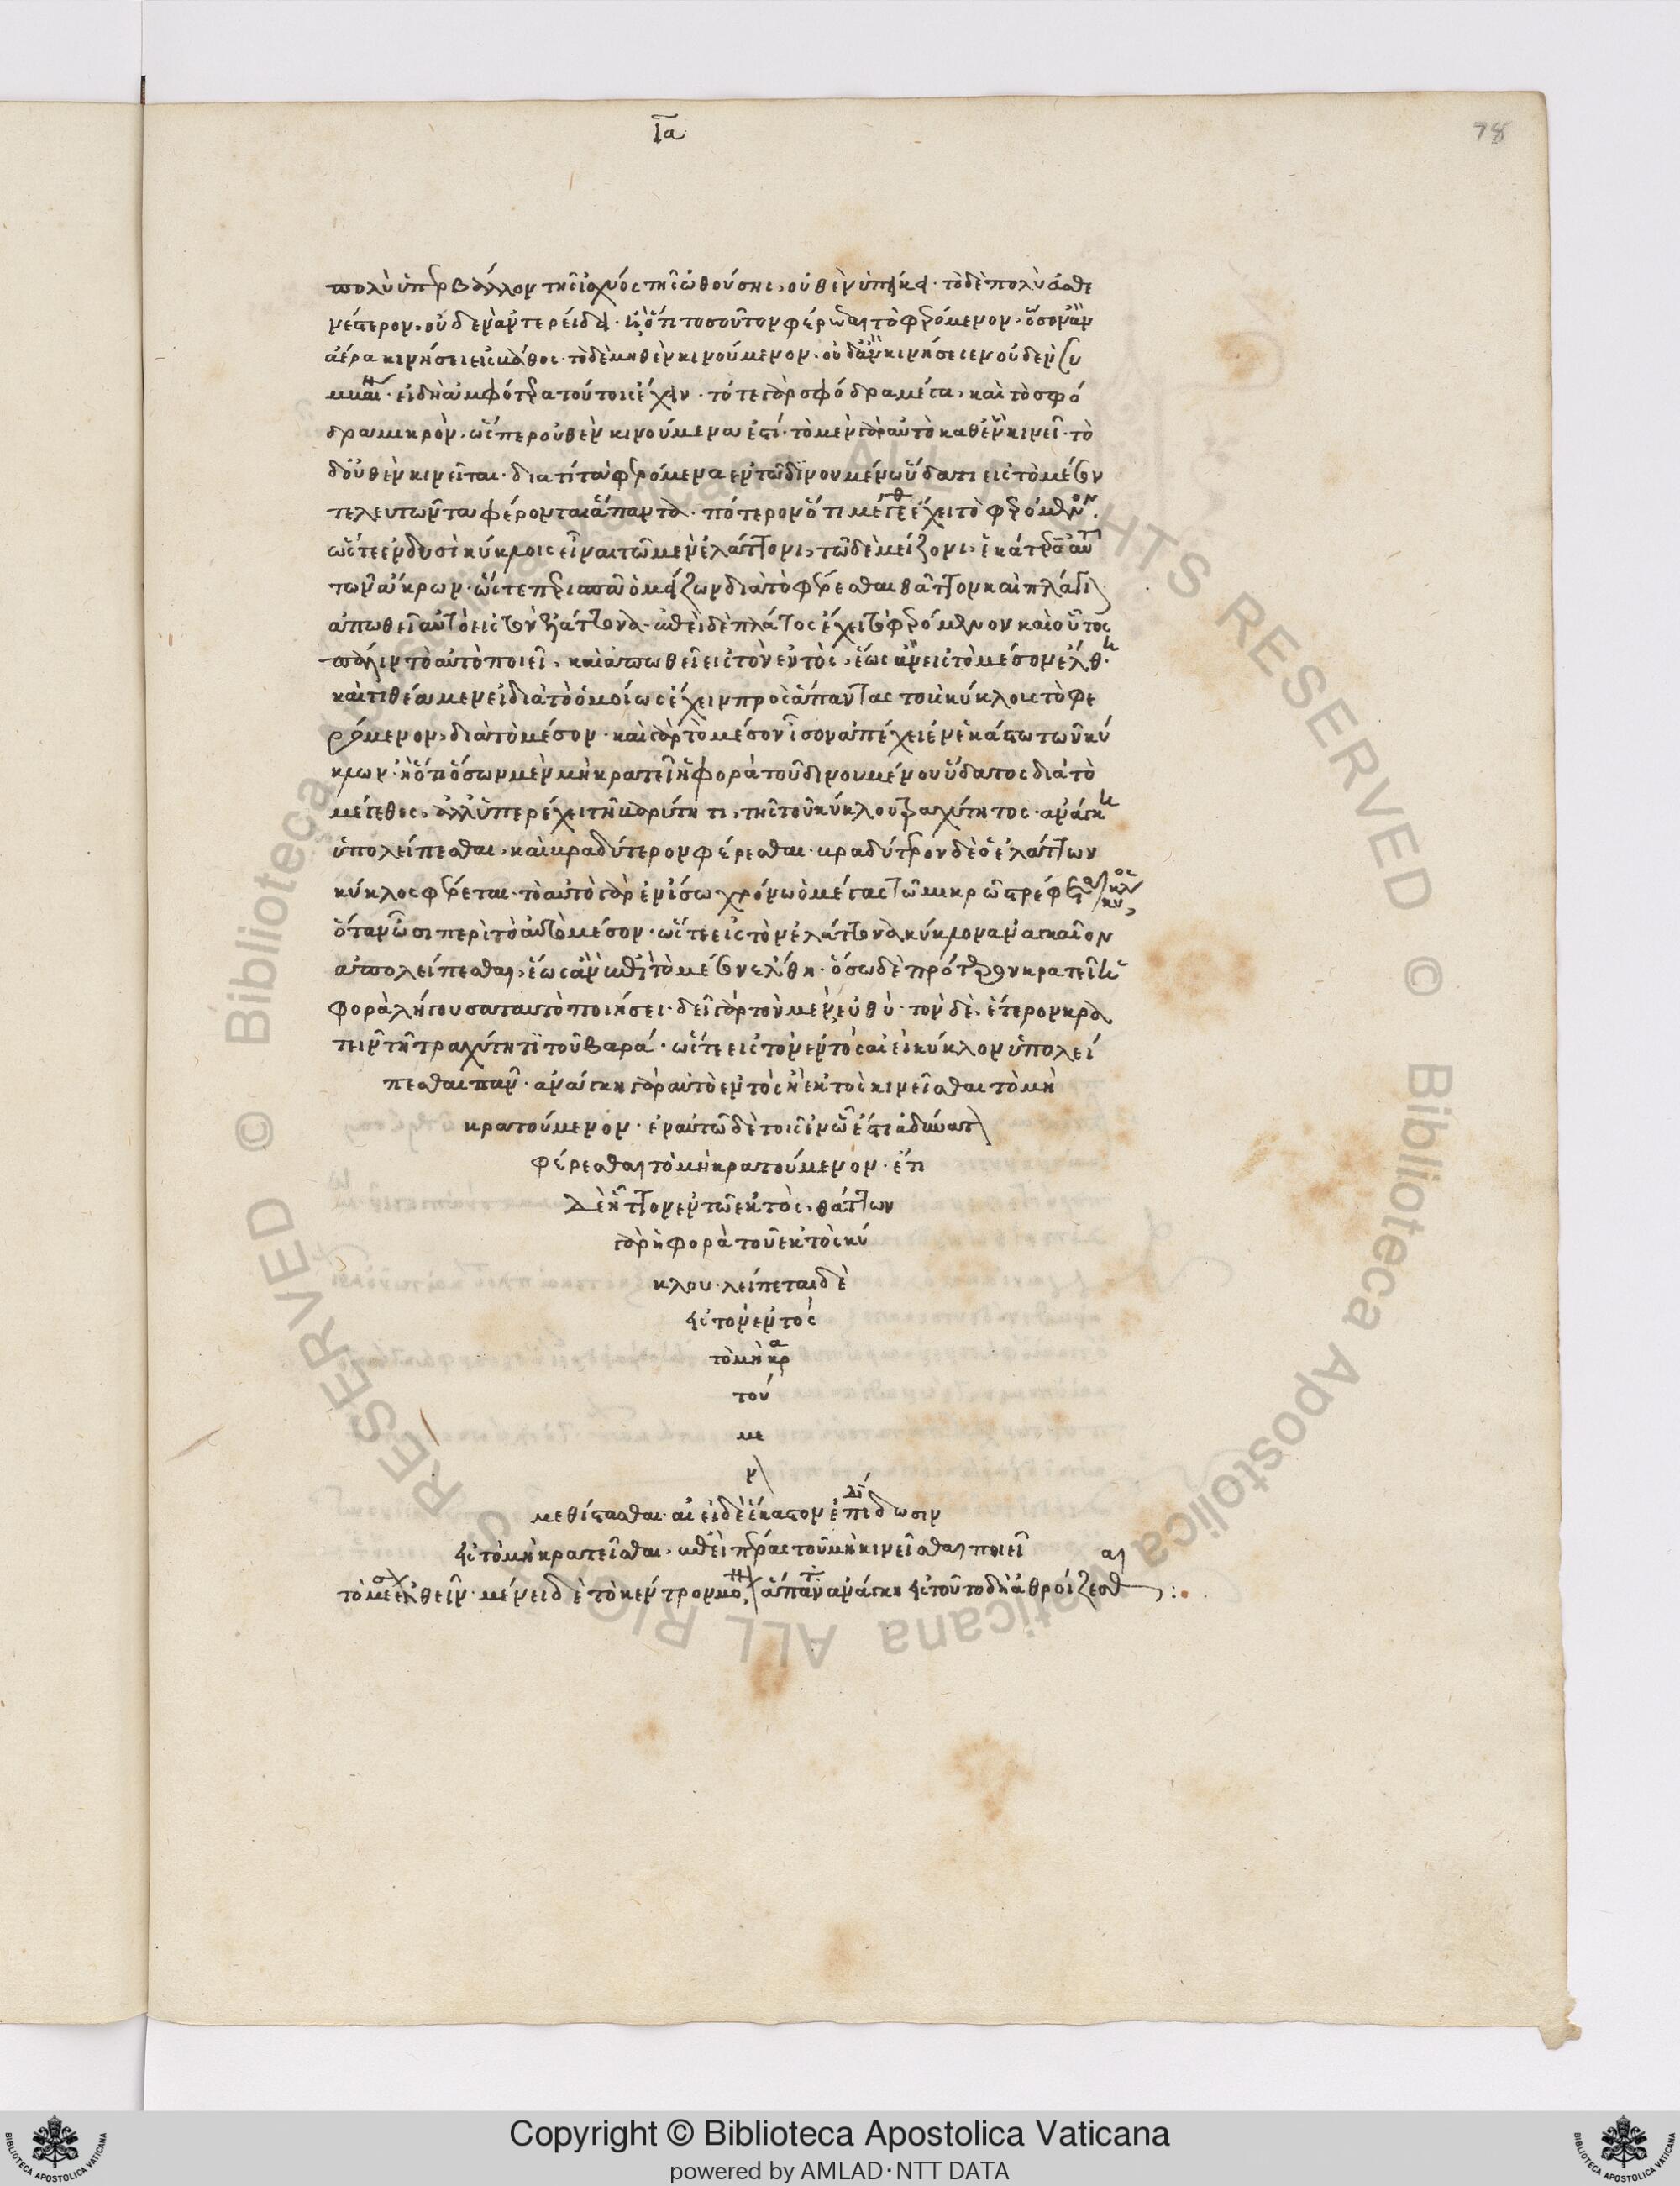 Ια
78
πολὺ ὑπερβάλλον τῆς ἰσχύος τῆς ὠθούσης, οὐθὲν ὑπείκει· τὸ δὲ πολὺ ἀσθε
νέστερον, οὐδὲν ἀντερείδει· ἢ ὅτι τοσοῦτον φέρεσθαι τὸ φερόμενον, ὅσον ἂν
ἀέρα κινήσει εἰς βάθος· τὸ δὲ μηθὲν κινούμενον, οὐδ' ἂν κινήσειεν οὐδέν· συ
μβαίνει δὴ ἀμφότερα τούτοις ἔχειν· τό τε γὰρ σφόδρα μέγα, καὶ τὸ σφό
δρα μικρὸν, ὥσπερ οὐθὲν κινούμενα ἐστί· τὸ μὲν γὰρ αὐτὸ καθὲν κινεῖ· τὸ
δ' οὐθὲν κινεῖται· διατί τὰ φερόμενα ἐν τῷ δινουμένῳ ὕδατι εἰς τὸ μέσον
τελευτῶντα φέρονται ἅπαντα· πότερον ὅτι μέγεθος ἔχει τὸ φερόμενον·
ὥστε ἐν δυσὶ κύκλοις εἶναι τῷ μὲν ἐλάττονι, τῷ δὲ μείζονι, ἑκάτερα αὐτ
τῶν ἄκρων· ὥστε περισπᾷ ὁ μείζων διὰ τὸ φέρεσθαι θᾶττον καὶ πλάγι
ἀπωθεῖ αὐτὸ εἰς τὸν ἐλάττονα· ἐπεὶ δὲ πλάτος ἔχει τὸ φερόμενον καὶ οὗτος
πάλιν τὸ αὐτὸ ποιεῖ, καὶ ἀπωθεῖ εἰς τὸν ἐντὸς, ἕως ἂν εἰς τὸ μέσον ἔλθη·
καὶ τιθέα μένει διὰ τὸ ὁμοίως ἔχειν πρὸς ἅπαντας τοὺς κύκλους τὸ φε
ρόμενον, διὰ τὸ μέσον· καὶ γὰρ τὸ μέσον ἴσον ἀπέχει ἐν ἑκάστῳ τῶν κύ
κλων· ἢ ὅτι ὅσων μὲν μὴ κρατεῖ ἡ φορὰ τοῦ δινουμένου ὕδατος διὰ τὸ
μέγεθος, ἀλλ' ὑπερέχει τῇ βαρύτητι, τῆς τοῦ κύκλου ταχύτητος· ἀνάγκη
ὑπολείπεσθαι, καὶ βραδύτερον φέρεσθαι· βραδύτερον δὲ ὁ ἐλάττων
κύκλος φέρεται· τὸ αὐτὸ γὰρ ἐν ἴσῳ χρόνῳ ὁ μέγας τῷ μικρῷ στρέφεται κύκλος
ὅταν ὦσι περὶ τὸ αὐτὸ μέσον· ὥστε εἰς τὸν ἐλάττονα κύκλον ἀναγκαῖον
ἀπολείπεσθαι, ἕως ἂν ἐπὶ τὸ μέσον ἔλθη· ὅσῳ δὲ πρότερον κρατεῖ ἡ
φορὰ λήγουσα ταυτὸ ποιήσει· δεῖ γὰρ τὸν μὲν εὐθύ· τὸν δὲ, ἕτερον κρα
τεῖν τῇ τραχύτητι τοῦ βαρά· ὥστε εἰς τὸν ἐντὸς αἰεὶ κύκλον ὑπολεί
πεσθαι πᾶν· ἀνάγκη γὰρ αὐτὸ ἐντὸς ἢ ἐκτὸς κινεῖσθαι τὸ μὴ
κρατούμενον· ἐν αὐτῷ δὲ τοῖς ἐν ᾧ ἐστι ἀδύνατ
φέρεσθαι τὸ μὴ κρατούμενον· ἔτι
δὲ ἧττον ἐν τῷ ἐκτὸς, θάττων
γὰρ ἡ φορὰ τοῦ ἐκτὸς κύ
κλου· λείπεται δὲ
εἰς τὸν ἐντὸς
τὸ μὴ κρα
τού
με
ν
μεθίστασθαι· αἰεὶ δὲ ἕκαστον ἐπιδίδωσιν
εἰς τὸ μὴ κρατεῖσθαι, ἐπεὶ πέρας τοῦ μὴ κινεῖσθαι ποιεῖ
τὸ μέσον ἐλθεῖν· μένει δὲ τὸ κέντρον μόνον, ἅπαντα ἀνάγκη εἰς τοῦτο δὴ ἀθροίζεσθαι:
Copyright © Biblioteca Apostolica Vaticana
powered by AMLAD·NTT DATA